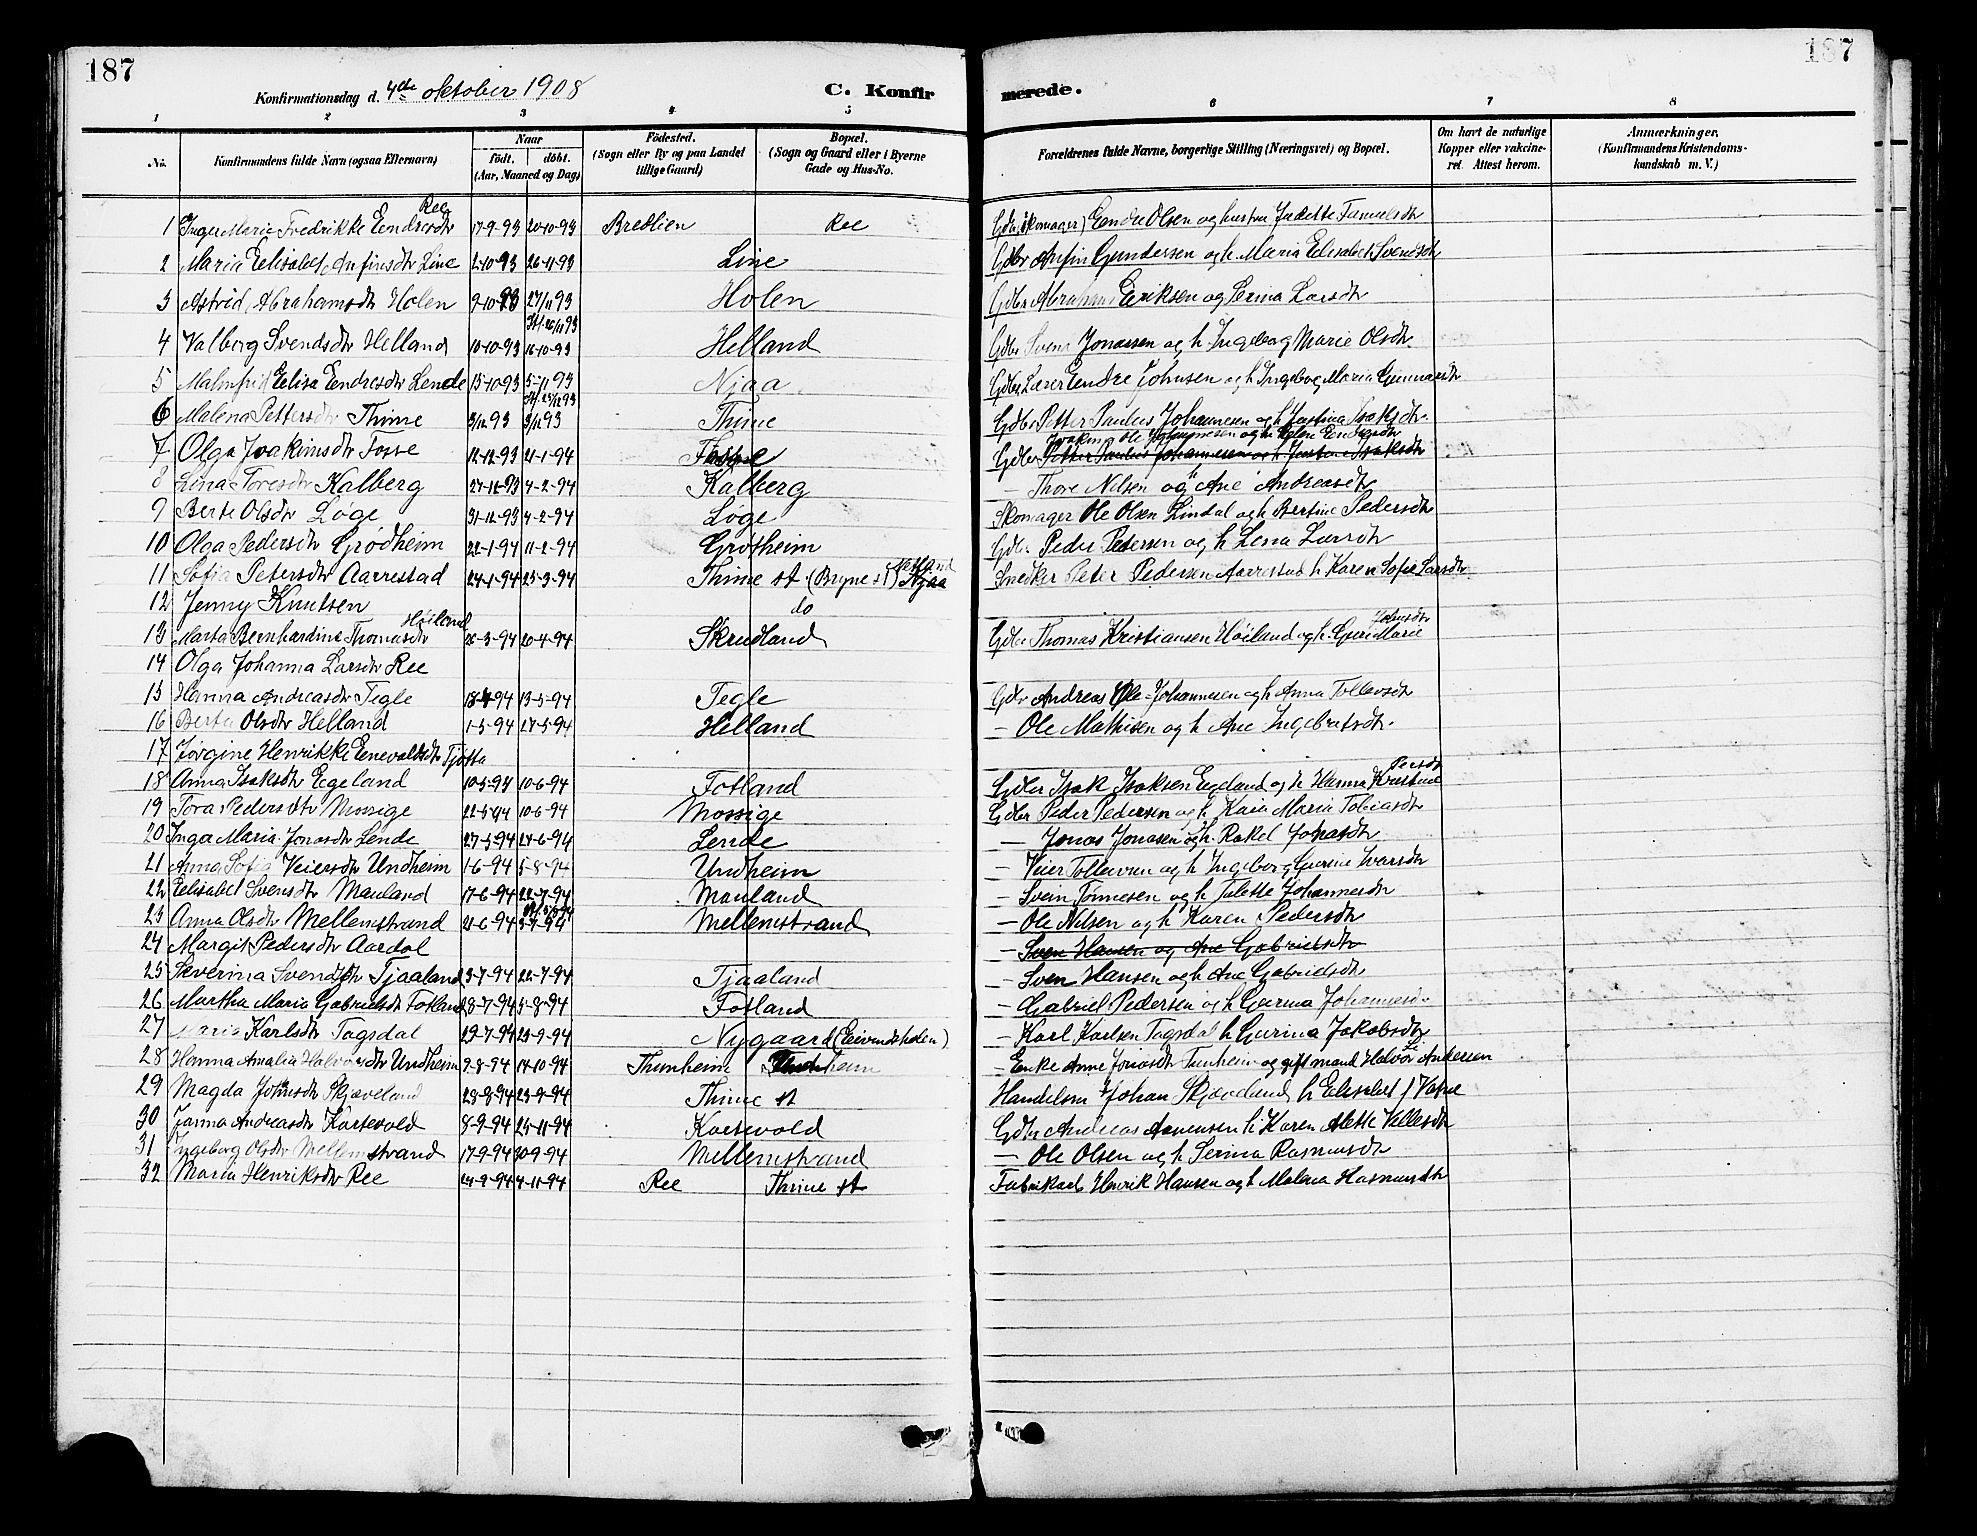 187
187
Konfirmationsdag d. 4de oktober 1908
C. Konfirmerede.
1 2 3 4 5 6 7 8
No.
Konfirmandens fulde Navn (ogsaa Efternavn)
Naar
født. døbt.
(Aar, Maaned og Dag)
Fødested.
(Sogn eller By og paa Landet
tillige Gaard)
Bopæl.
(Sogn og Gaard eller i Byerne
Gade og Hus-No.
Forældrenes fulde Navne, borgerlige Stilling (Næringsvei) og Bopæl.
Om havt de naturlige
Kopper eller vakcine-
ret. Attest herom.
Anmærkninger.
(Konfirmandens Kristendoms-
kundskab m. V.)
Ree
1 Inger Marie Fredrikke Eendresdtr 17-9-93 20-10-93 Bredlien Ree Gdbr. (skomager) Eendre Olsen og hustru
2 Maria Eelisabet Anfinsdtr Line 2-10-93 26-11-93 Line Gdbr Anfin Gundersen og h. Maria Elisabet Svendsdtr
3 Astrid Abrahamsdtr Holen 9-10-93 27/11 93 Holen Gdbr Abraham Eriksen og Serina Larsdtr
Stf. 26/11 93
4 Valborg Svendsdtr Helland 10-10-93 16-10-93 Helland Gdbr Svend Jonassen og h. Ingeborg Marie Olsdtr.
5 Malmfrid Eelisa Eendresdtr Lende 15-10-93 5-11 93 Njaa Gdbr, Lærer Eendre Johnsen og h. Ingeborg Maria Gunnarsdtr
6 Malena Pettersdtr Thime 3/12 93 3/12 93 Thime Gdbr Petter Paulus Johannesen og h. Justina Isaksdtr.
Joakim Ole Johannesen og h. Elen Eendresdtr
7 Olga Joakimsdtr Fosse 12-12-93 21-1-94 Fosse Gdbr Petter Paulus Johannesen og h. Justine Isaksdtr
8 Lina Toresdtr Kalberg 27-12-93 4-2-94 Kalberg — Thore Nilsen og Ane Andreasdtr
9 Berte Olsdtr Løge 31-12-93 4-2-94 Løge Skomager Ole Olsen Lindal og h. Bertine Pedersdtr
10 Olga Pedersdtr Grødheim 22-1-94 11-2-94 Grødheim Gdbr Peder Pedersen og h. Lena Larsdtr
11 Sofia Petersdtr Aarrestad 24-1-94 25-3-94 Thime st. (Bryne st.) Njaa Snedker Peter Pedersen Aarrestad h. Karen Sofie Larsdtr
12 Jenny Knutsen do
Høiland Johnsdtr
13 Marta Bernhardine Thomasdtr 26-3-94 20-4-94 Skrudland Gdbr Thomas Kristiansen Høiland og h. Guri Marie
14 Olga Johanna Larsdtr Ree
15 Hanna Andreasdtr Tegle 18-4-94 13-5-94 Tegle Gdbr Andreas Ole Johannesen og h. Anna Tollevsdtr
16 Berta Olsdtr Helland 1-5-94 27-5-94 Helland — Ole Mathisen og h. Ane Ingebretsdtr.
17 Jørgine Henrikke Eenevaldsdtr Tjøtta
Persdtr
18 Anna Isaksdtr Eegeland 10-5-94 10-6-94 Fotland Gdbr Isak Isaksen Eegeland og h. Hanna Kristine
19 Tora Pedersdtr Mossige 22-5-94 10-6-94 Mossige Gdbr Peder Pedersen og h. Kaia Maria Tobiasdtr
20 Inga Maria Jonasdtr Lende 27-5-94 24-6-94 Lende — Jonas Jonasen og h. Rakel Jonasdtr
21 Anna Sofia Veiersdtr Undheim 1-6-94 5-8-94 Undheim — Veier Tollevsen og h. Ingeborg Gurine Ivarsdtr
22 Eelisabet Svensdtr Mauland 17-6-94 22-7-94 Mauland — Svein Tønnesen og h. Talette Johannesdtr
23 Anna Olsdtr Mellemstrand 21-6-94 Mellemstrand — Ole Nilsen og h. Karen Pedersdtr
24 Margit Pedersdtr Aardal — Sven Hansen og Ane Gabrielsdtr
25 Severina Svendsdtr Tjaaland 3-7-94 22-7-94 Tjaaland — Sven Hansen og h. Ane Gabrielsdtr
26 Martha Maria Gabrielsdtr Fotland 8-7-94 5-8-94 Fotland — Gabriel Pedersen og h. Gurina Johannesd.
27 Maria Karlsdtr Tagsdal 29-7-94 23-9-94 Nygaard (Eeivendsholen) — Karl Karlsen Tagsdal h. Gurina Jakobsdtr
28 Hanna Amalia Halvorsdtr Undheim 9-8-94 14-10-94 Thunheim Undheim — Enke Anne Jonasdtr Tunheim og gift mand Halvor Andersen
29 Magda Johnsdtr Skjæveland 28-8-94 23-9-94 Thime st Handelsm Johan Skjæveland h. Elisabet f. Vatne
30 Janna Andreasdtr Kartevold 8-9-94 25-11-94 Kartevold Gdbr Andreas Aanensen h. Karen Alette Vellesdtr
31 Ingeborg Olsdtr Mellemstrand 17-9-94 30-9-94 Mellemstrand — Ole Olsen og h. Serina Rasmusdtr
32 Maria Henriksdtr Ree 24-9-94 4-11-94 Ree Thime st Fabrikarb. Henrik Hansen og h. Malena Rasmusdtr